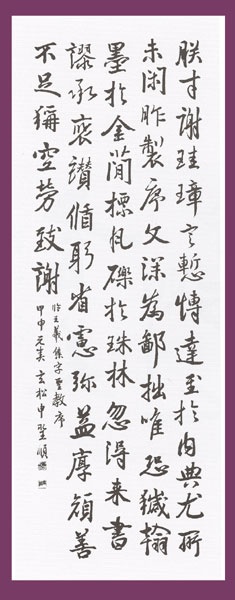 朕才謝珪璋言慙博達至於內典尤所
未閑昨製序文深為鄙拙唯恐穢翰
墨於金簡標瓦礫於珠林忽得来書
謬承褒讚循躬省慮弥益厚顔善
不足稱空勞致謝
臨王羲集字聖教序
甲申 玄松申 順